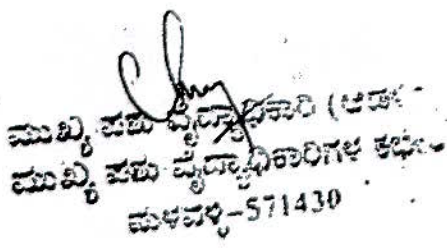 ಮುಖ್ಯ ಪಶು ವೈದ್ಯಾಧಿಕಾರಿ (ಆಡಳ
ಮುಖ್ಯ ಪಶು ವೈದ್ಯಾಧಿಕಾರಿಗಳ ಕಛೇ
ಮಳವಳ್ಳಿ-571430